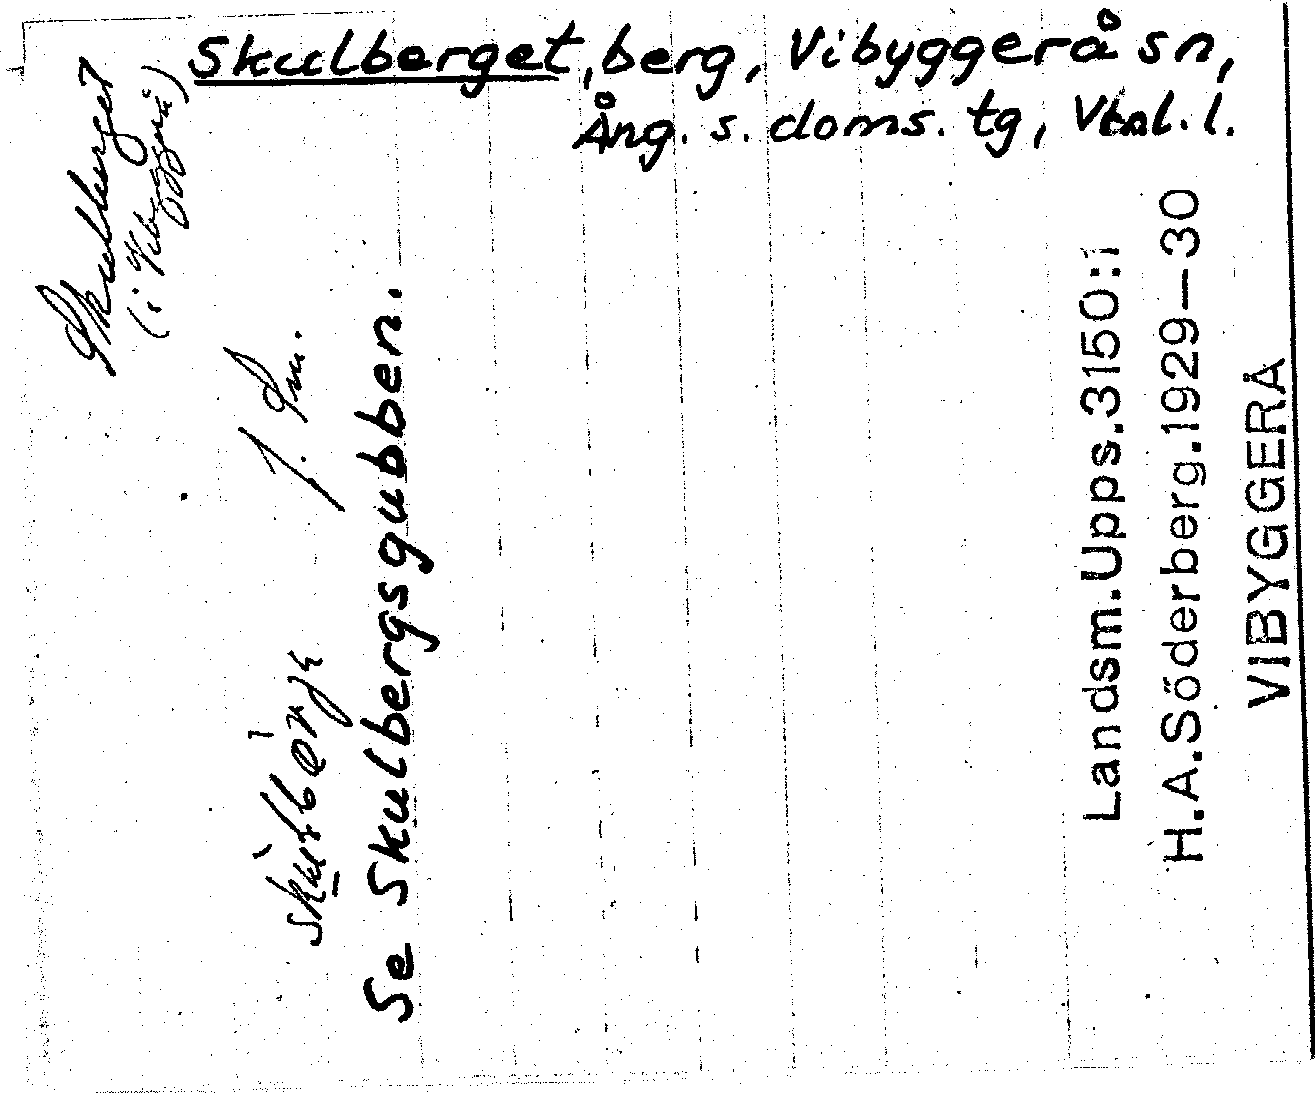 Skulberget, berg, Vibyggerå sn,
Ång. s. doms. tg, Vtnl. l.
Skulberget
(i Vibyggerå)
J. Sm.
Se Skulbergsgubben.
Landsm. Upps. 3150:1
H.A. Söderberg. 1929–30
VIBYGGERÅ